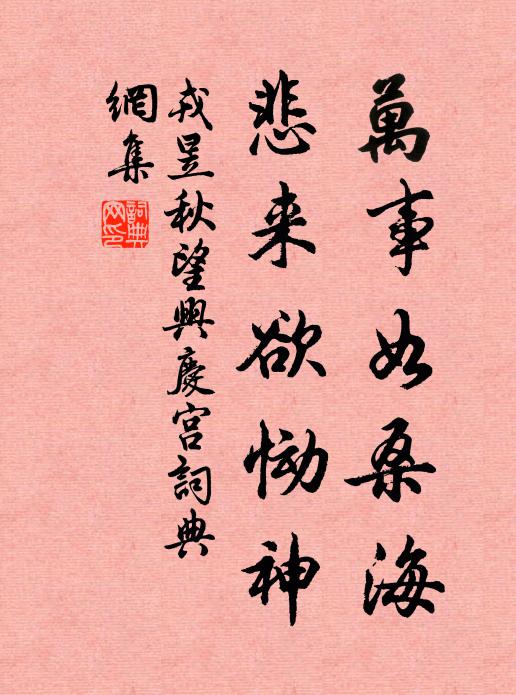 萬事如桑海
悲来欲恸神
戎昱秋望興慶宫詞典
網集
詞典網印